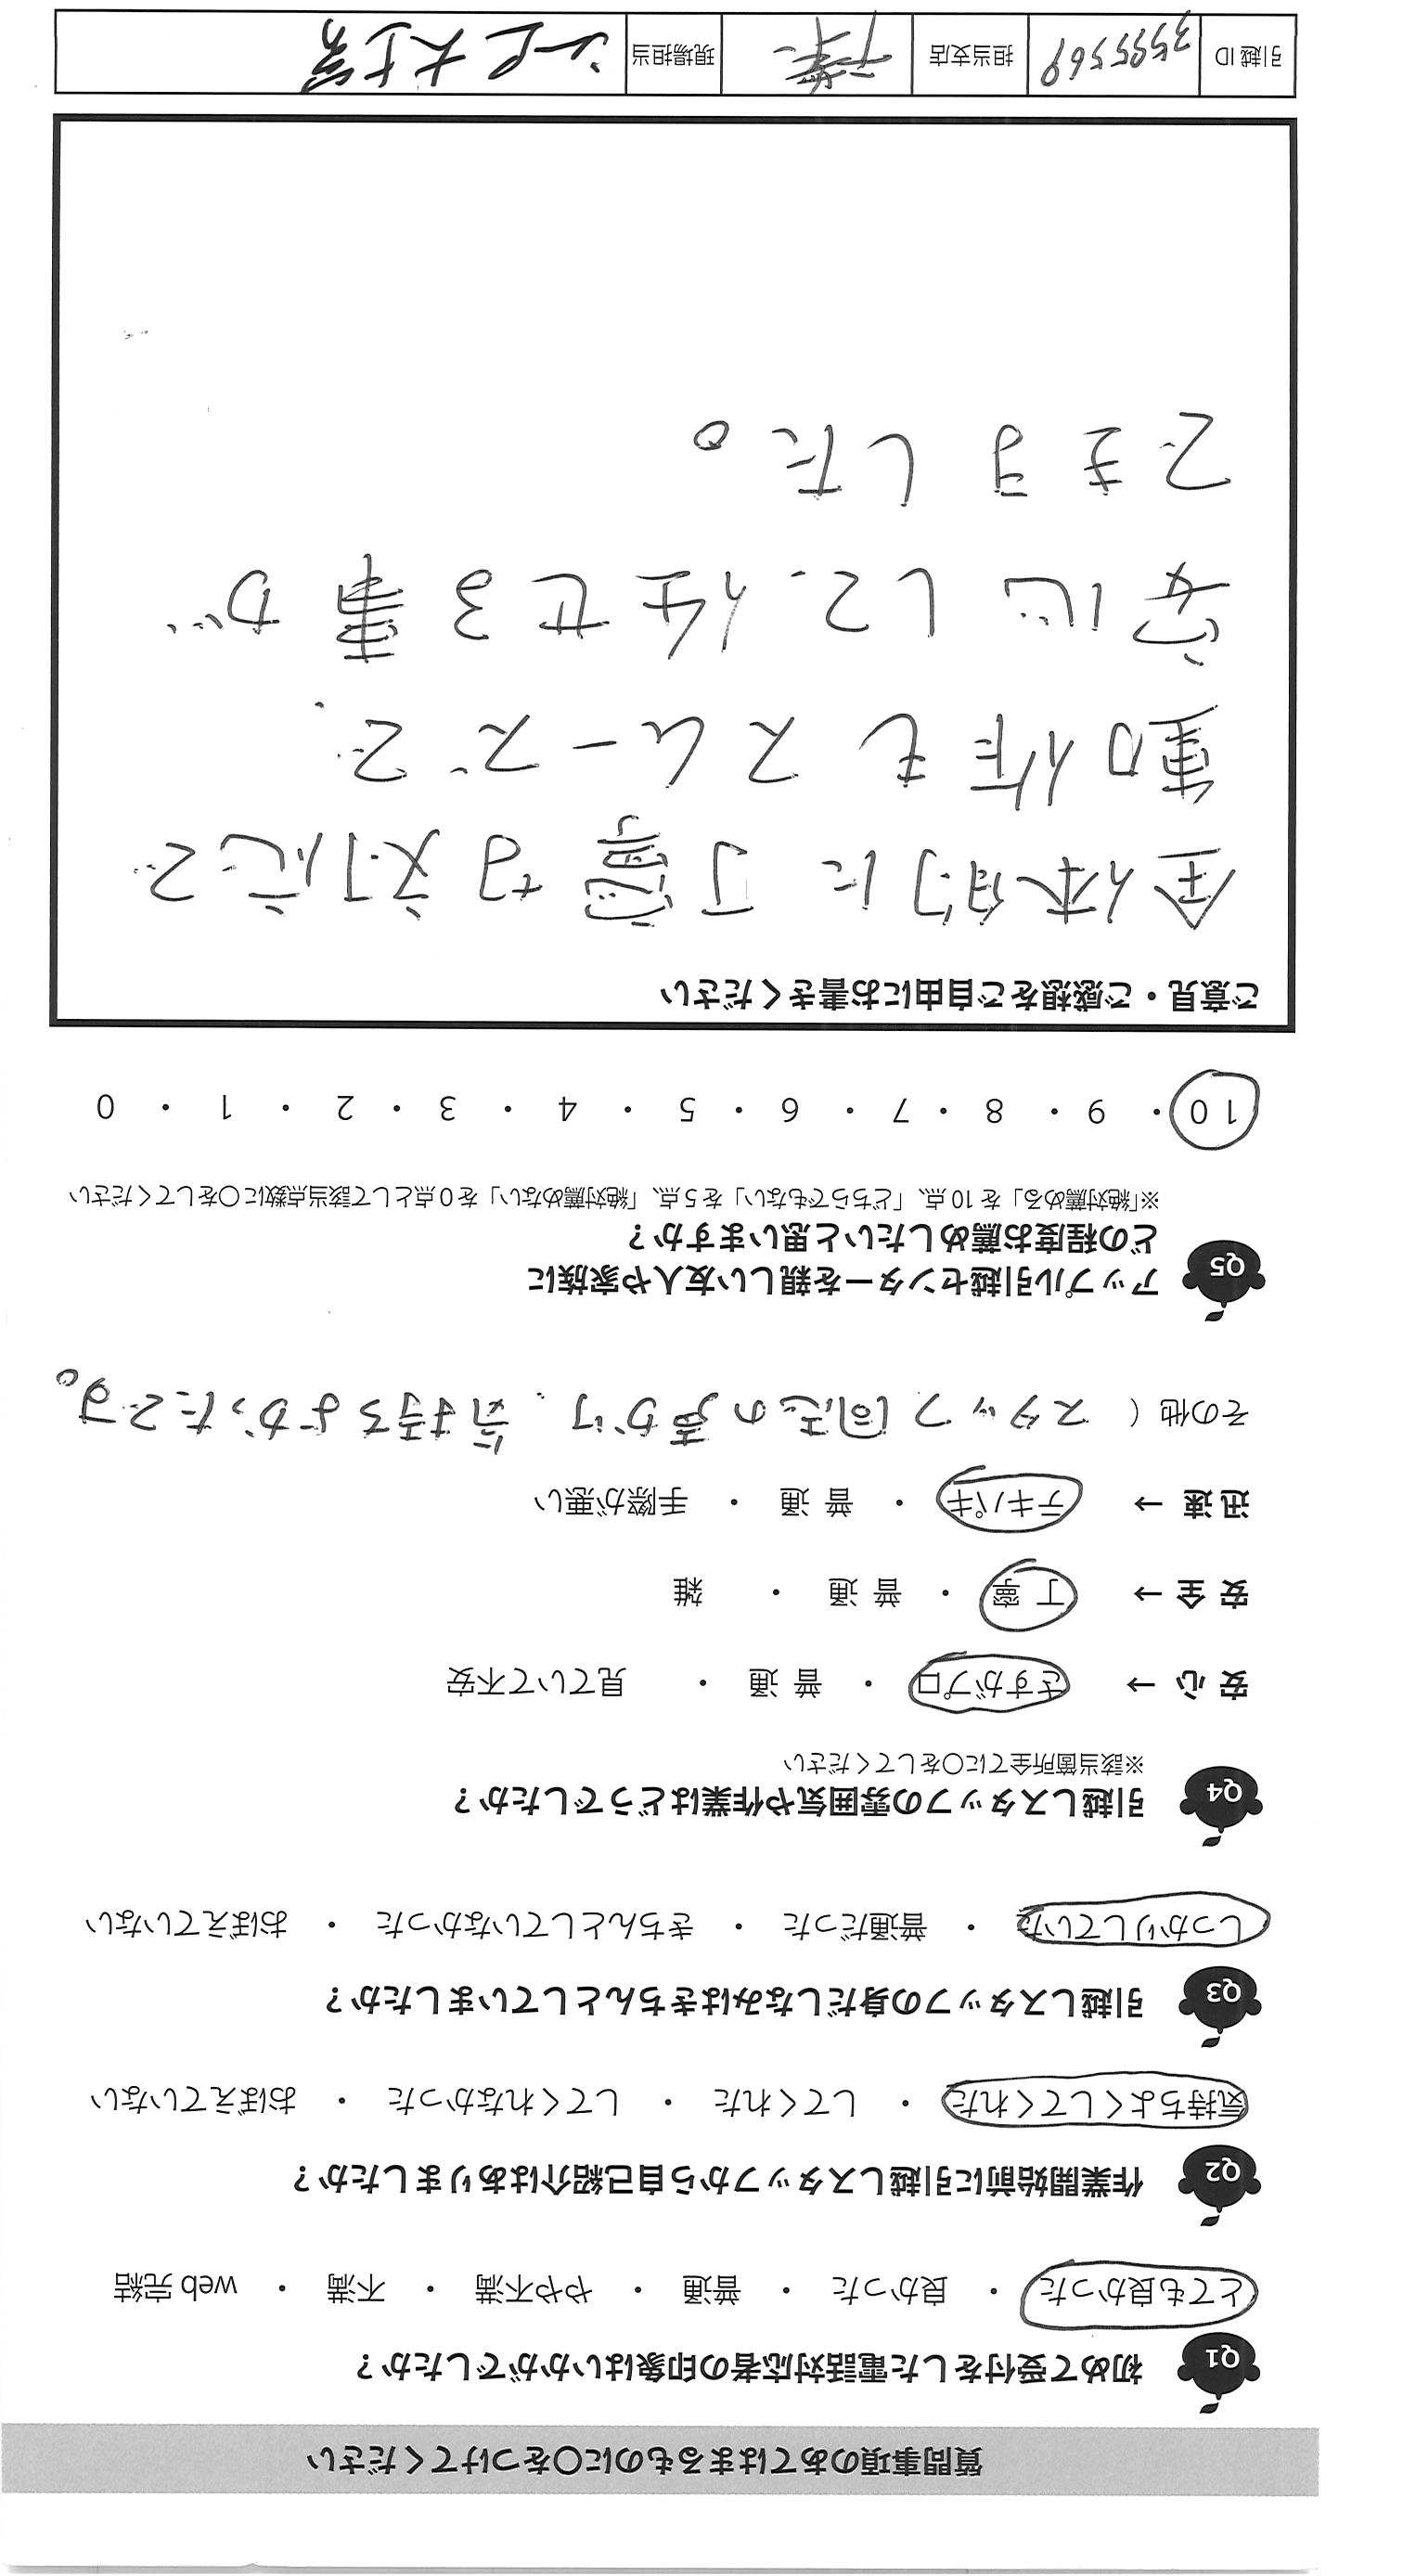 質問事項のあてはまるものに〇をつけてください
Q1 初めて受付をした電話対応者の印象はいかがでしたか？
とても良かった ・ 良かった ・ 普通 ・ やや不満 ・ 不満 ・ web 完結
Q2 作業開始前に引越しスタッフから自己紹介はありましたか？
気持ちよくしてくれた ・ してくれた ・ してくれなかった ・ おぼえていない
Q3 引越しスタッフの身だしなみはきちんとしていましたか？
しっかりしていた ・ 普通だった ・ きちんとしていなかった ・ おぼえていない
Q4 引越しスタッフの雰囲気や作業はどうでしたか？
※該当箇所全てに〇をしてください
安 心 → さすがプロ ・ 普 通 ・ 見ていて不安
安 全 → 丁 寧 ・ 普 通 ・ 雑
迅 速 → テキパキ ・ 普 通 ・ 手際が悪い
その他（ スタッフ同志の声がけ、気持ちよかったです。
Q5 アップル引越センターを親しい友人や家族に
どの程度お薦めしたいと思いますか？
※「絶対薦める」を 10 点、「どちらでもない」を 5 点、「絶対薦めない」を 0 点として該当点数に〇をしてください
10 ・ 9 ・ 8 ・ 7 ・ 6 ・ 5 ・ 4 ・ 3 ・ 2 ・ 1 ・ 0
ご意見・ご感想をご自由にお書きください
全体的に丁寧な対応で
動作もスムーズで、
安心して任せる事が
できました。
引越 ID 3595569 担当支店 千葉 現場担当